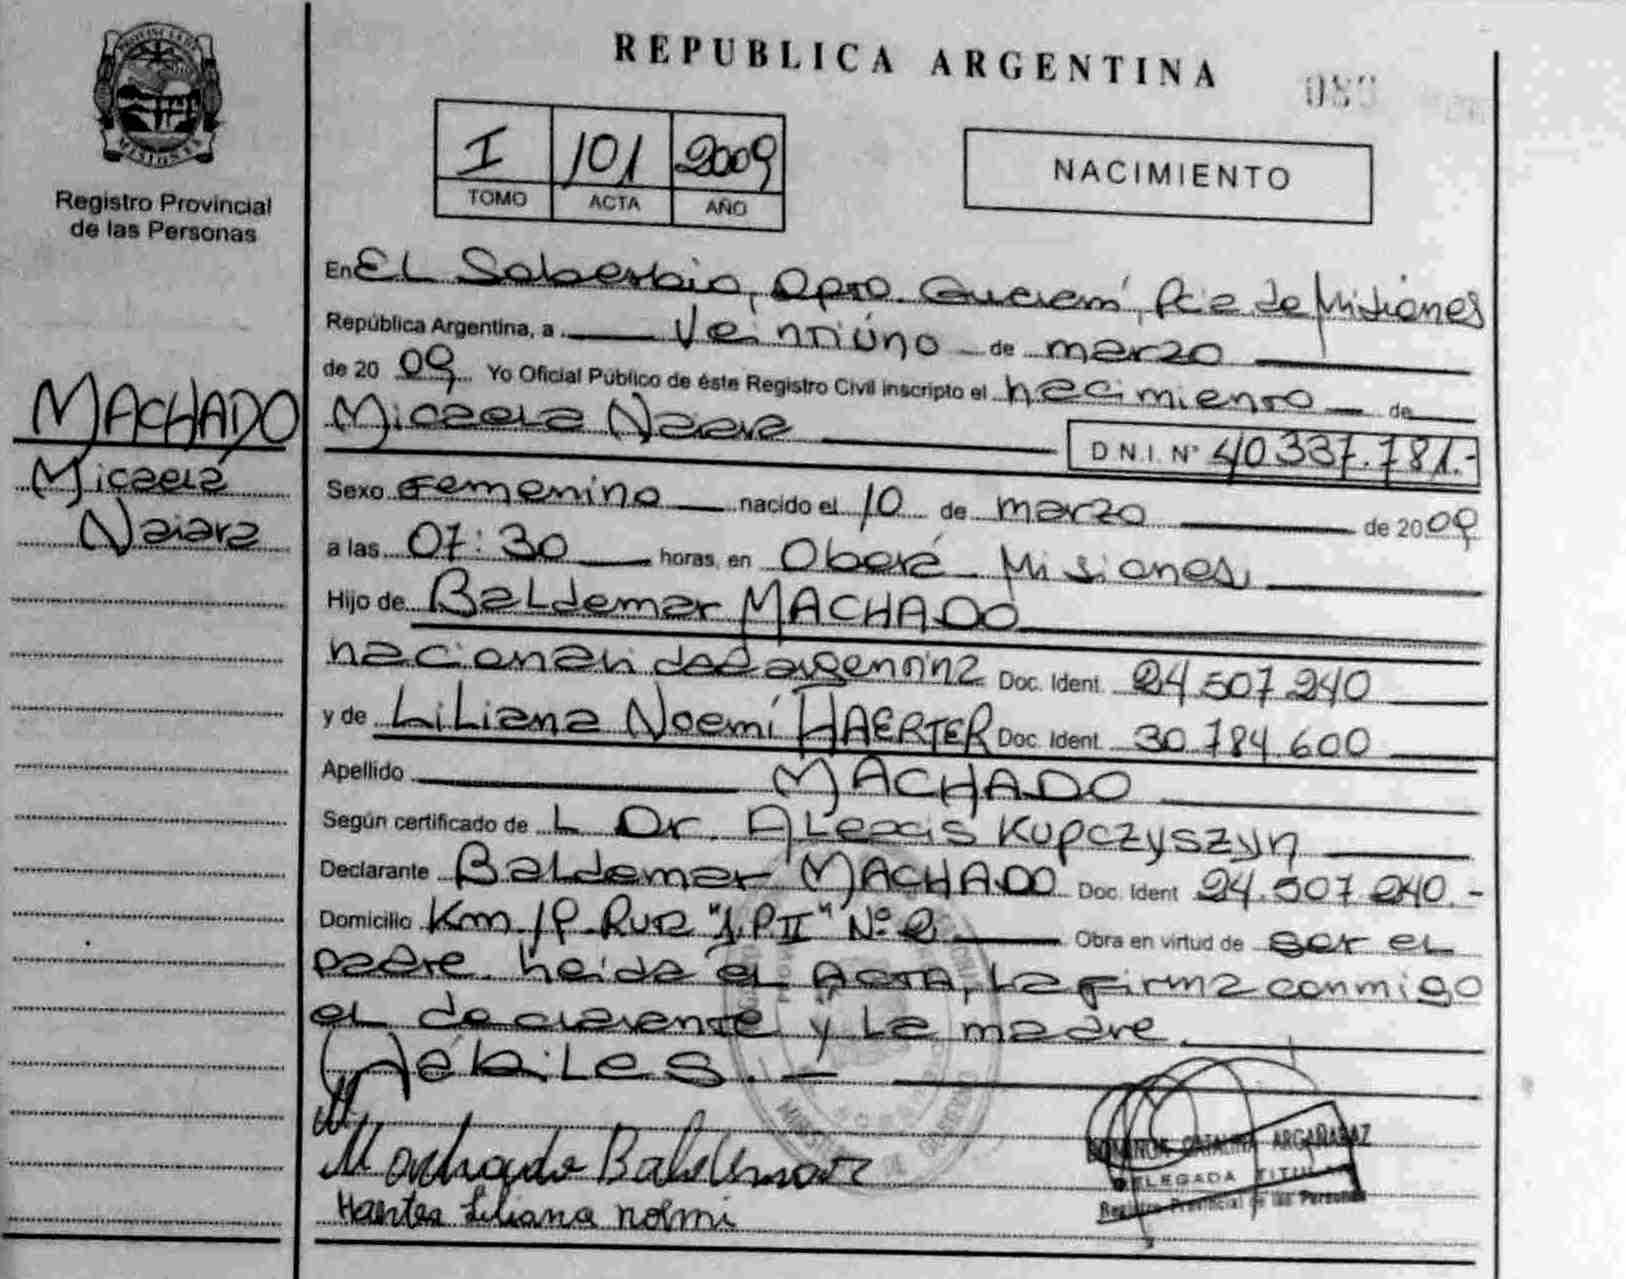 PROVINCIA DE
MISIONES
Registro Provincial
de las Personas
MACHADO
Micaela
Naiara
REPUBLICA ARGENTINA
080
I 101 2009
TOMO ACTA AÑO
NACIMIENTO
En EL Soberbio, Dpto. Guaraní, Pcia de Misiones
República Argentina, a Veintiúno de marzo
de 2009 Yo Oficial Público de éste Registro Civil inscripto el nacimiento de
Micaela Naiara
D.N.I. N° 40.337.781.-
Sexo Femenino nacido el 10 de marzo de 2009
a las 07:30 horas, en Oberá Misiones,
Hijo de Baldemar MACHADO
nacionalidad argentina Doc. Ident. 24.507.240
y de Liliana Noemí HAERTER Doc. Ident. 30.784.600
Apellido MACHADO
Según certificado de L Dr. Alexis Kupczyszyn
Declarante Baldemar MACHADO Doc. Ident. 24.507.240.-
Domicilio Km. Ruta "J.P.II" N° 2 Obra en virtud de ser el
padre. Leida el ACTA, La firma conmigo
el declarante y La madre.
Hábiles.-
Machado Baldemar
Liliana noemi
CATALINA ARGAÑARAZ
DELEGADA TITULAR
Registro Provincial de las Personas